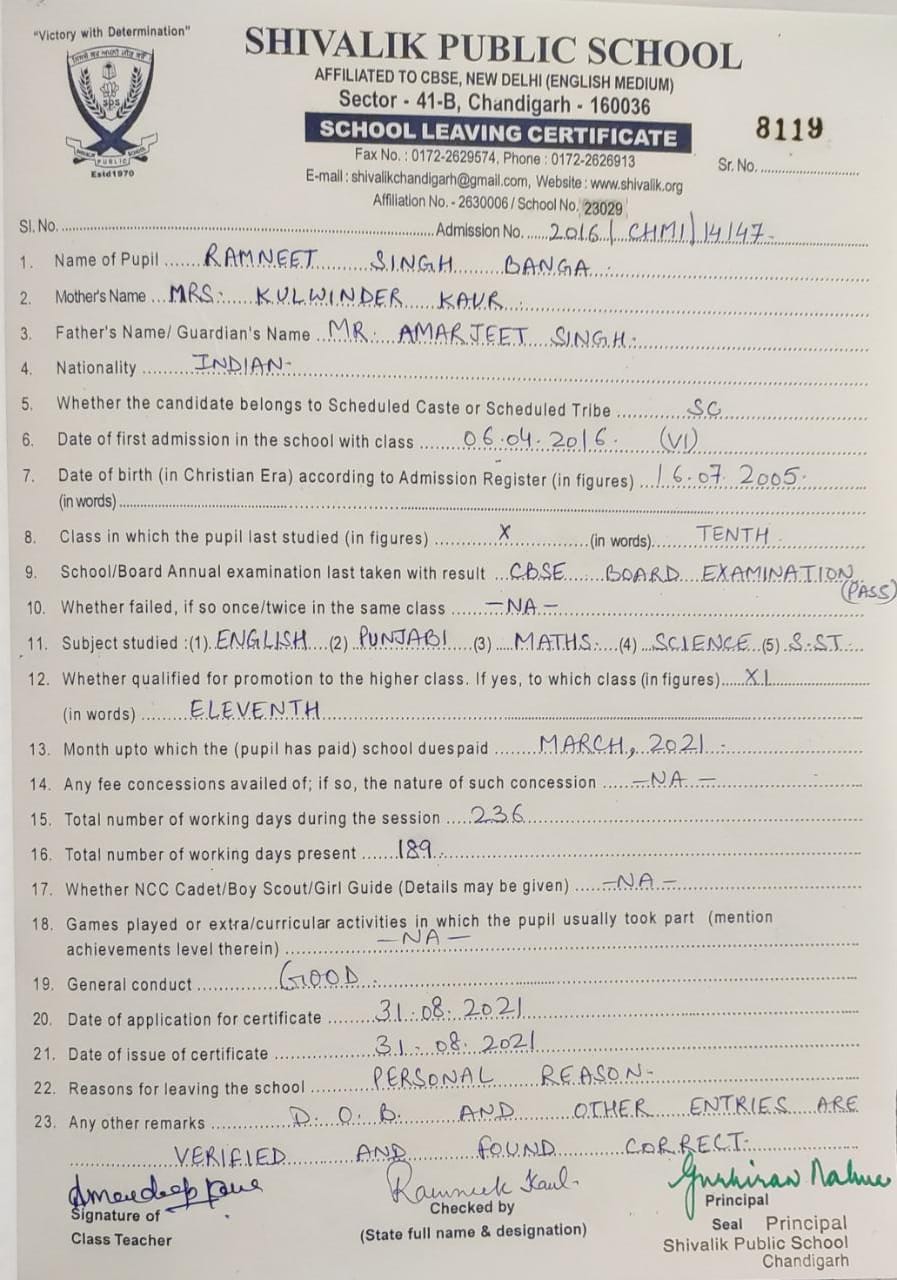 "Victory with Determination"
SHIVALIK PUBLIC SCHOOL
AFFILIATED TO CBSE, NEW DELHI (ENGLISH MEDIUM)
Sector - 41-B, Chandigarh - 160036
SCHOOL LEAVING CERTIFICATE
8119
Fax No. : 0172-2629574, Phone : 0172-2626913
Sr. No. ..........
E-mail : shivalikchandigarh@gmail.com, Website : www.shivalik.org
Affiliation No. - 2630006 / School No. 23029
sps
PUBLIC
SCHOOL
Estd 1970
Sl. No. .......... Admission No. ..... 2016 / CHMI / 14147-
1. Name of Pupil ..... RAMNEET SINGH BANGA.
2. Mother's Name ... MRS. KULWINDER KAUR.
3. Father's Name/ Guardian's Name .. MR. AMARJEET SINGH.
4. Nationality ..... INDIAN-
5. Whether the candidate belongs to Scheduled Caste or Scheduled Tribe ..... SC
6. Date of first admission in the school with class ..... 06.04.2016. (VI)
7. Date of birth (in Christian Era) according to Admission Register (in figures) ... 16.07.2005.
(in words) ..........
8. Class in which the pupil last studied (in figures) ..... X ..... (in words) ..... TENTH.
9. School/Board Annual examination last taken with result ... CBSE BOARD EXAMINATION
(PASS)
10. Whether failed, if so once/twice in the same class ..... -NA-
11. Subject studied :(1). ENGLISH ...(2) PUNJABI ...(3) ... MATHS. ...(4) ... SCIENCE ...(5) S.ST...
12. Whether qualified for promotion to the higher class. If yes, to which class (in figures)..... XI
(in words) ..... ELEVENTH
13. Month upto which the (pupil has paid) school duespaid ..... MARCH, 2021 -
14. Any fee concessions availed of; if so, the nature of such concession ..... -NA-
15. Total number of working days during the session ..... 236
16. Total number of working days present ..... 189.
17. Whether NCC Cadet/Boy Scout/Girl Guide (Details may be given) ..... -NA-
18. Games played or extra/curricular activities in which the pupil usually took part (mention
achievements level therein) ..... -NA-
19. General conduct ..... GOOD.
20. Date of application for certificate ..... 31.08.2021
21. Date of issue of certificate ..... 31-08.2021
22. Reasons for leaving the school ..... PERSONAL REASON-
23. Any other remarks ..... D.O.B. AND OTHER ENTRIES ARE
VERIFIED AND FOUND CORRECT.
Ramneek Kaul.
Signature of
Class Teacher
Checked by
(State full name & designation)
Principal
Seal Principal
Shivalik Public School
Chandigarh